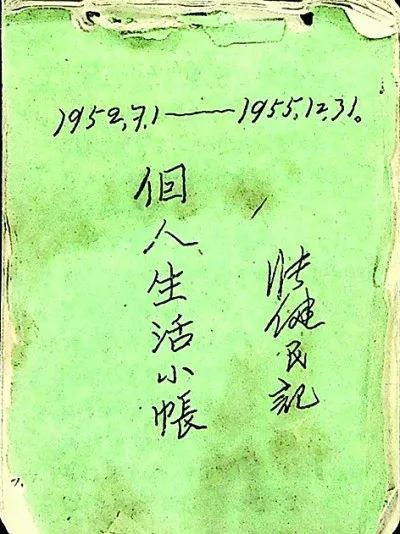 1952.7.1——1955.12.31。
個人生活小帳
張健民記